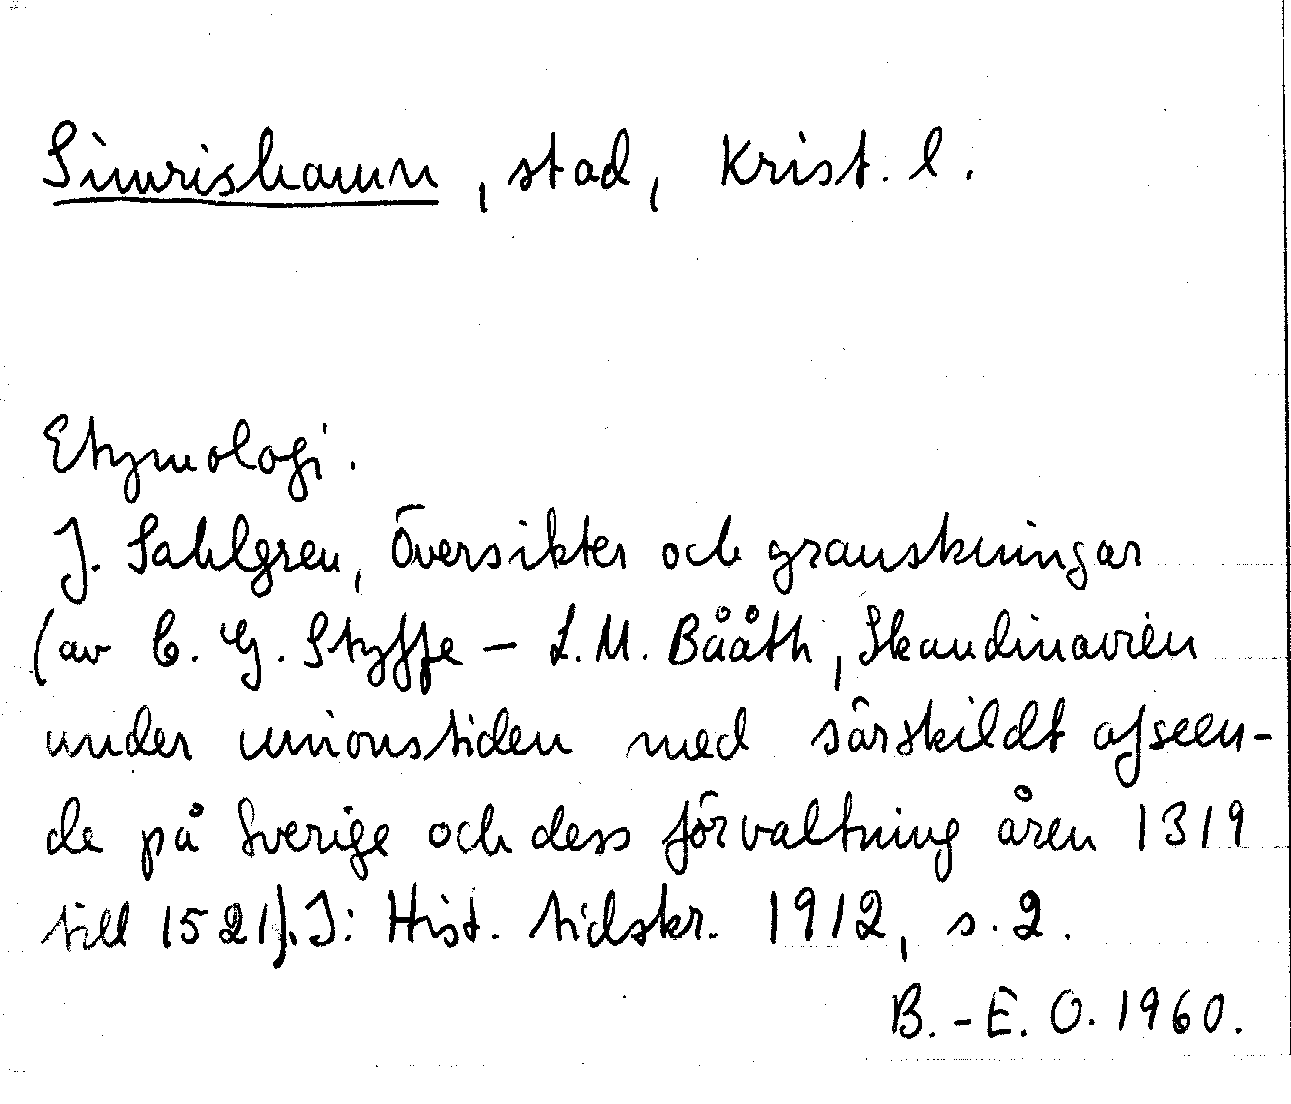 Simrishamn, stad, Krist. l.
Etymologi.
J. Sahlgren, Översikter och granskningar
(av C. G. Styffe – L. M. Bååth, Skandinavien
under unionstiden med särskildt afseen-
de på Sverige och dess förvaltning åren 1319
till 1521). I: Hist. tidskr. 1912, s. 2.
B.-E. O. 1960.